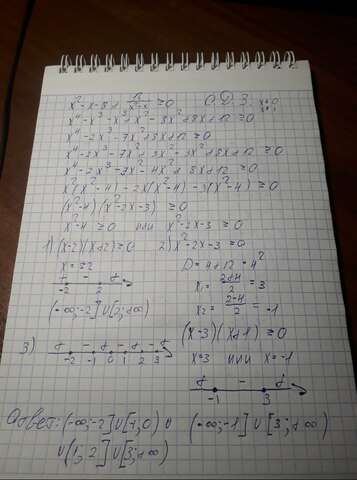 x² - x - 8 + 12/(x²-x) ≥ 0    О.Д.З.
x⁴ - x³ - x³ + x² - 8x² + 8x + 12 ≥ 0
x⁴ - 2x³ - 7x² + 8x + 12 ≥ 0
x⁴ - 2x³ - 7x² + 3x² - 3x² + 8x + 12 ≥ 0
x⁴ - 2x³ - 3x² - 4x² + 8x + 12 ≥ 0
x²(x²-4) - 2x(x²-4) - 3(x²-4) ≥ 0
(x²-4)(x²-2x-3) ≥ 0
x²-4 ≥ 0 или x²-2x-3 ≥ 0
1) (x-2)(x+2) ≥ 0    2) x²-2x-3 = 0
x = ±2    D = 4+12 = 4²
+ - +
-2 2
x₁ = (2+4)/2 = 3
x₂ = (2-4)/2 = -1
(-∞;-2] ∪ [2;+∞)
(x-3)(x+1) ≥ 0
x=3 или x=-1
3) + - + - + - +
-2 -1 0 1 2 3
+ - +
-1 3
(-∞;-1] ∪ [3;+∞)
Ответ: (-∞;-2] ∪ [-1;0) ∪
∪ (1;2] ∪ [3;+∞)